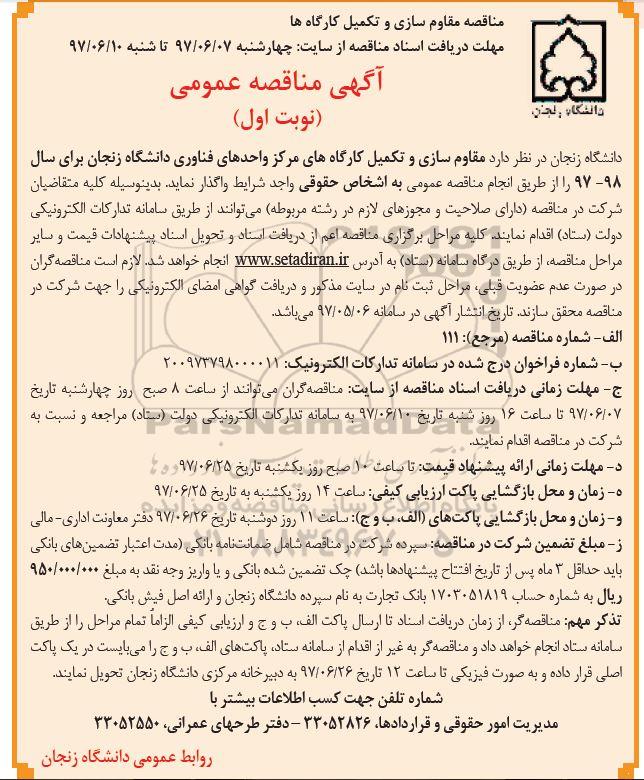 مناقصه مقاوم سازی و تکمیل کارگاه ها
مهلت دریافت اسناد مناقصه از سایت: چهارشنبه ۹۷/۰۶/۰۷ تا شنبه ۹۷/۰۶/۱۰
دانشگاه زنجان
آگهی مناقصه عمومی
(نوبت اول)
دانشگاه زنجان در نظر دارد مقاوم سازی و تکمیل کارگاه های مرکز واحدهای فناوری دانشگاه زنجان برای سال
۹۸- ۹۷ را از طریق انجام مناقصه عمومی به اشخاص حقوقی واجد شرایط واگذار نماید. بدینوسیله کلیه متقاضیان
شرکت در مناقصه (دارای صلاحیت و مجوزهای لازم در رشته مربوطه) می‌توانند از طریق سامانه تدارکات الکترونیکی
دولت (ستاد) اقدام نمایند. کلیه مراحل برگزاری مناقصه اعم از دریافت اسناد و تحویل اسناد پیشنهادات قیمت و سایر
مراحل مناقصه، از طریق درگاه سامانه (ستاد) به آدرس www.setadiran.ir انجام خواهد شد. لازم است مناقصه‌گران
در صورت عدم عضویت قبلی، مراحل ثبت نام در سایت مذکور و دریافت گواهی امضای الکترونیکی را جهت شرکت در
مناقصه محقق سازند. تاریخ انتشار آگهی در سامانه ۹۷/۰۵/۰۶ می‌باشد.
الف- شماره مناقصه (مرجع): ۱۱۱
ب- شماره فراخوان درج شده در سامانه تدارکات الکترونیک: ۲۰۰۹۷۳۷۹۸۰۰۰۰۱۱
ج- مهلت زمانی دریافت اسناد مناقصه از سایت: مناقصه‌گران می‌توانند از ساعت ۸ صبح روز چهارشنبه تاریخ
۹۷/۰۶/۰۷ تا ساعت ۱۶ روز شنبه تاریخ ۹۷/۰۶/۱۰ به سامانه تدارکات الکترونیکی دولت (ستاد) مراجعه و نسبت به
شرکت در مناقصه اقدام نمایند.
د- مهلت زمانی ارائه پیشنهاد قیمت: تا ساعت ۱۰ صبح روز یکشنبه تاریخ ۹۷/۰۶/۲۵
ه- زمان و محل بازگشایی پاکت ارزیابی کیفی: ساعت ۱۴ روز یکشنبه به تاریخ ۹۷/۰۶/۲۵
و- زمان و محل بازگشایی پاکت‌های (الف، ب و ج): ساعت ۱۱ روز دوشنبه تاریخ ۹۷/۰۶/۲۶ دفتر معاونت اداری- مالی
ز- مبلغ تضمین شرکت در مناقصه: سپرده شرکت در مناقصه شامل ضمانت‌نامه بانکی (مدت اعتبار تضمین‌های بانکی
باید حداقل ۳ ماه پس از تاریخ افتتاح پیشنهادها باشد) چک تضمین شده بانکی و یا واریز وجه نقد به مبلغ ۹۵۰/۰۰۰/۰۰۰
ریال به شماره حساب ۱۷۰۳۰۵۱۸۱۹ بانک تجارت به نام سپرده دانشگاه زنجان و ارائه اصل فیش بانکی.
تذکر مهم: مناقصه‌گر، از زمان دریافت اسناد تا ارسال پاکت الف، ب و ج و ارزیابی کیفی الزاماً تمام مراحل را از طریق
سامانه ستاد انجام خواهد داد و مناقصه‌گر به غیر از اقدام از سامانه ستاد، پاکت‌های الف، ب و ج را می‌بایست در یک پاکت
اصلی قرار داده و به صورت فیزیکی تا ساعت ۱۲ تاریخ ۹۷/۰۶/۲۶ به دبیرخانه مرکزی دانشگاه زنجان تحویل نمایند.
شماره تلفن جهت کسب اطلاعات بیشتر با
مدیریت امور حقوقی و قراردادها، ۳۳۰۵۲۸۲۶ – دفتر طرحهای عمرانی، ۳۳۰۵۲۵۵۰
روابط عمومی دانشگاه زنجان
ParsNamadData
پایگاه اطلاع رسانی مناقصه و مزایده